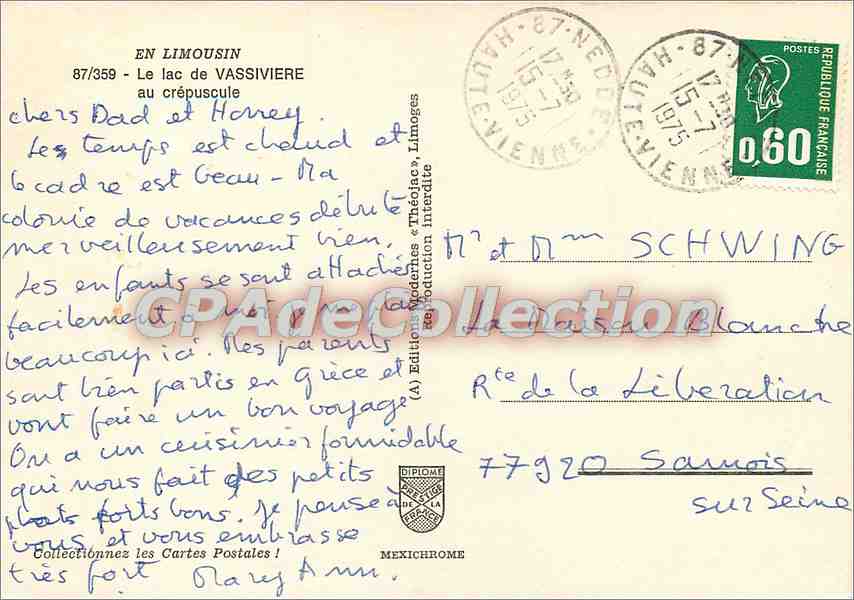 EN LIMOUSIN
87/359 - Le lac de VASSIVIERE
au crépuscule
chers Dad et Honey.
Les temps est chaud et
le cadre est beau - Ma
colonie de vacances débute
merveilleusement bien.
Les enfants se sont attachés
facilement à moi je me plais
beaucoup ici. Mes parents
sont bien partis en Grèce et
vont faire un bon voyage
On a un cuisinier formidable
qui nous fait des petits
plats forts bons. Je pense à
vous et vous embrasse
très fort Mary Ann.
Collectionnez les Cartes Postales !
(A) Editions Modernes « Théojac », Limoges
Reproduction interdite
DIPLOME
PRESTIGE
DE LA
FRANCE
MEXICHROME
87-NEDDE
17 H 30
15-7
1975
HAUTE-VIENNE
87-N
17 H 30
15-7
1975
HAUTE-VIENNE
POSTES
REPUBLIQUE FRANÇAISE
0,60
Mr et Mme SCHWING
La Maison Blanche
Rte de la Libération
77920 Samois
sur Seine
CPAdeCollection